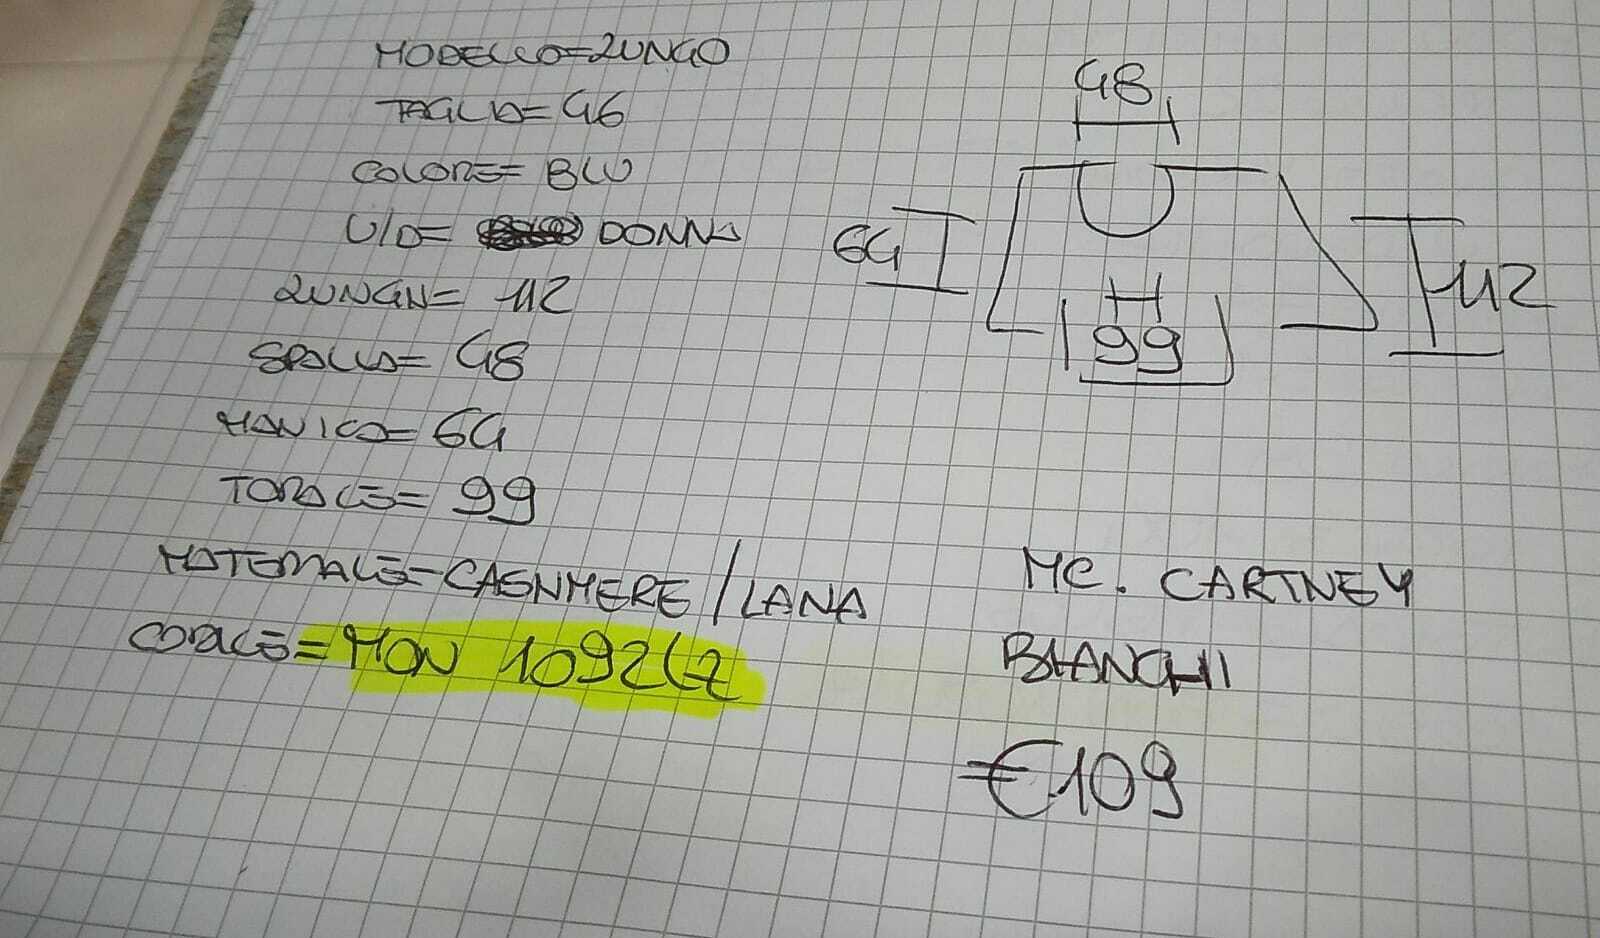 MODELLO=LUNGO
TAGLIA=46
COLORE=BLU
U/D= DONNA
LUNGH=112
SPALLA=48
MANICA=64
TORACE=99
MATERIALE=CASHMERE/LANA
CODICE=MON 1092LZ
48
64
112
99
MC. CARTNEY
BIANCHI
€109